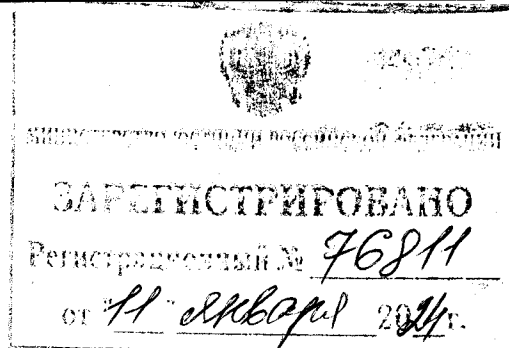 МИНИСТЕРСТВО ЮСТИЦИИ РОССИЙСКОЙ ФЕДЕРАЦИИ
ЗАРЕГИСТРИРОВАНО
Регистрационный № 76811
от "11" января 2024г.